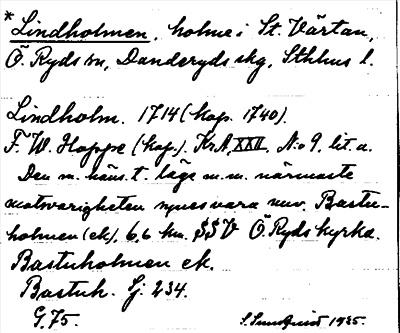 * Lindholmen, holme i St. Värtan,
Ö. Ryds sn, Danderyds skg, Sthlms l.
Lindholm. 1714 (kop. 1740).
F. W. Hoppe (kop.). KrA, XXII. N:o 9. lit. a.
Den m. häns. t. läge m. m. närmaste
motsvarigheten synes vara nuv. Bastu-
holmen (ek), 6,6 km. SSV Ö. Ryds kyrka.
Bastuholmen ek.
Bastuh. Sj. 234.
G. 75. S. Sundquist 1935.